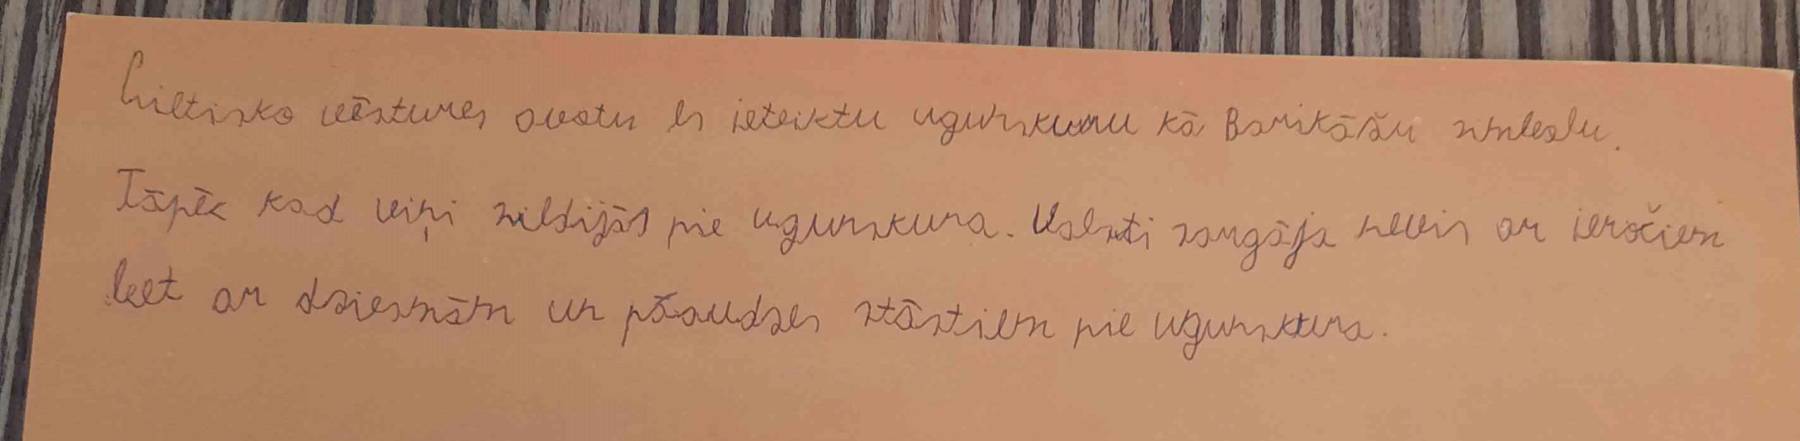 Lietisko vēstures avotu es ieteiktu ugunskuru kā Barikāžu simbolu.
Tāpēc kad viņi sildijās pie ugunskura. Valsti sargāja nevis ar ieročiem
bet ar dziesmām un pāaudzes stāstiem pie ugunskura.